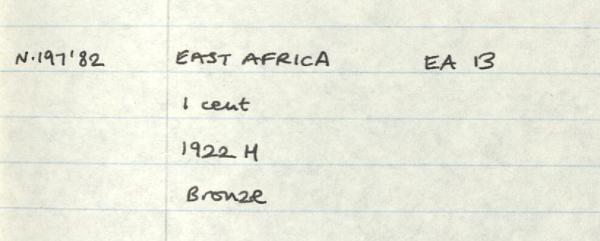 N.197'82 EAST AFRICA EA 13
1 cent
1922 H
Bronze